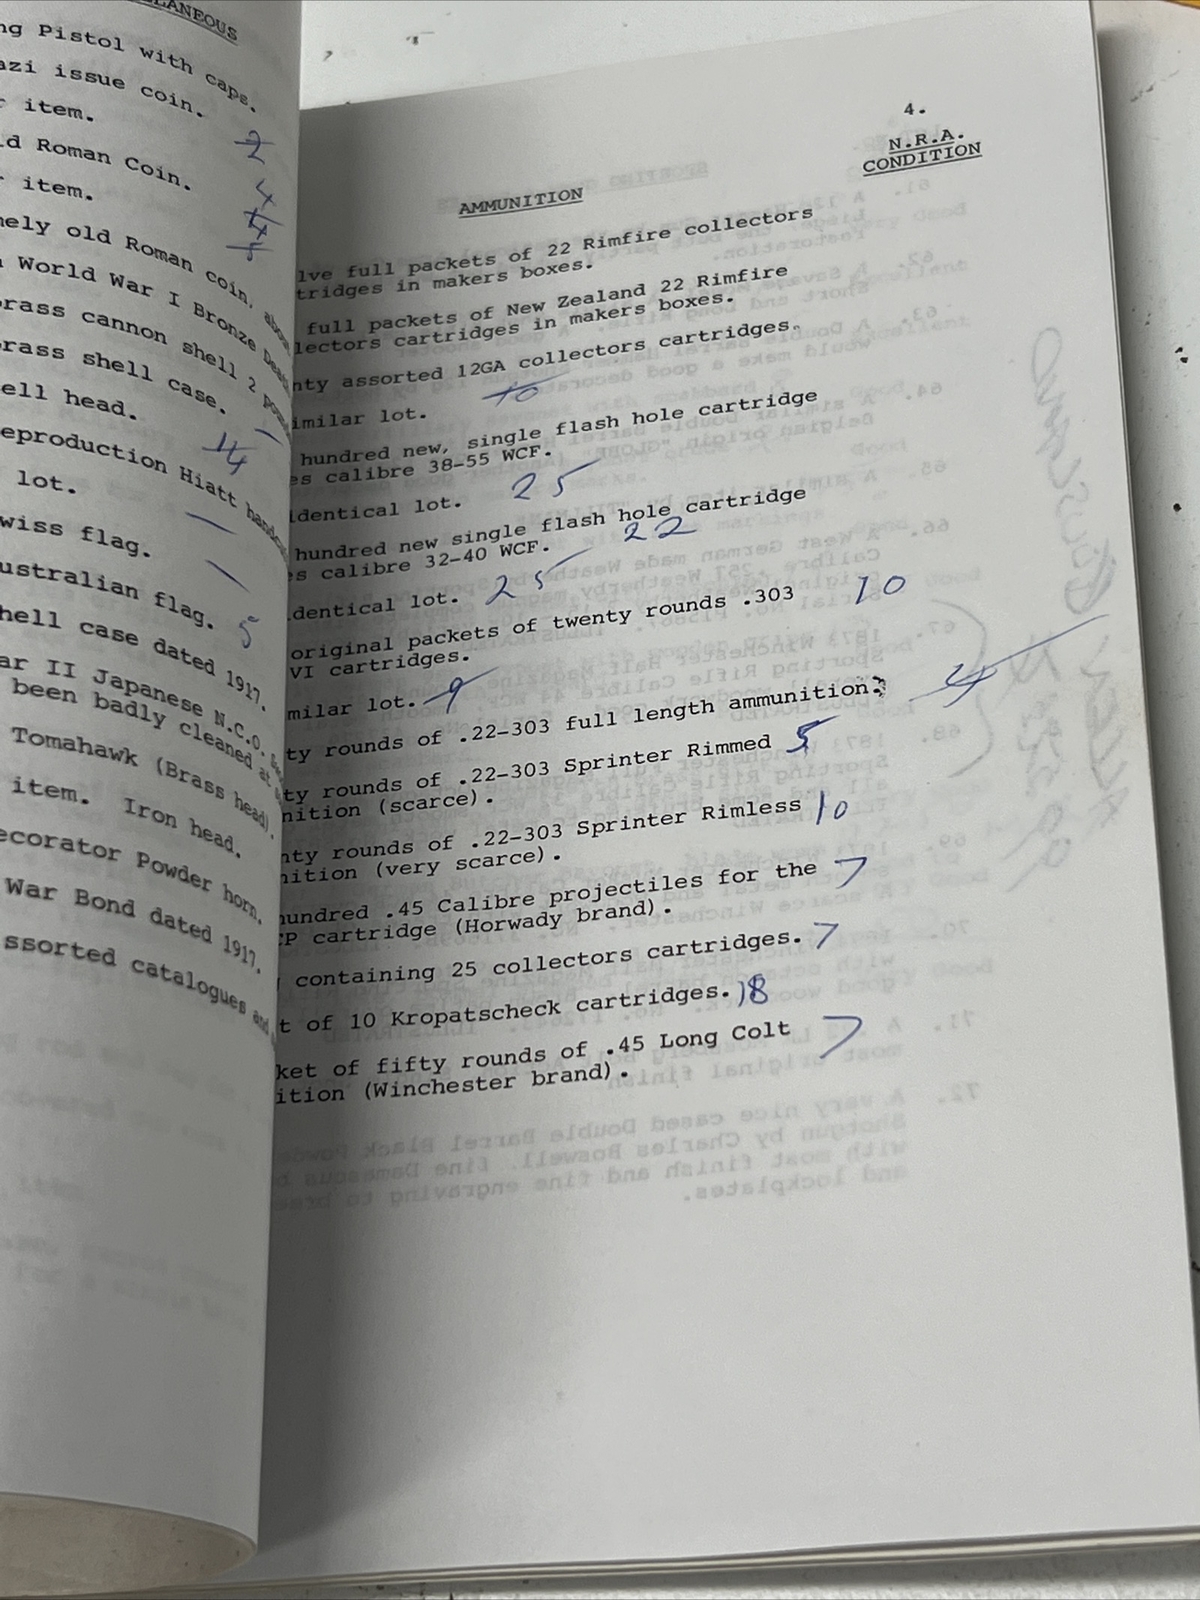 LLANEOUS
ng Pistol with caps.
azi issue coin.
r item.
ld Roman Coin.
r item.
mely old Roman coin,
World War I Bronze
rass cannon shell 2
rass shell case.
ell head.
eproduction Hiatt
lot.
wiss flag.
ustralian flag. 5
hell case dated 1917.
ar II Japanese N.C.O.
been badly cleaned at
Tomahawk (Brass head).
item. Iron head.
ecorator Powder horn.
War Bond dated 1917.
ssorted catalogues and
4.
N.R.A.
CONDITION
AMMUNITION
lve full packets of 22 Rimfire collectors
tridges in makers boxes.
full packets of New Zealand 22 Rimfire
lectors cartridges in makers boxes.
nty assorted 12GA collectors cartridges.
imilar lot. 10
hundred new, single flash hole cartridge
es calibre 38-55 WCF.
identical lot. 25
hundred new single flash hole cartridge
s calibre 32-40 WCF. 22
dentical lot. 25
original packets of twenty rounds .303 10
VI cartridges.
milar lot. 9
ty rounds of .22-303 full length ammunition. 4
ty rounds of .22-303 Sprinter Rimmed 5
nition (scarce).
nty rounds of .22-303 Sprinter Rimless 10
nition (very scarce).
hundred .45 Calibre projectiles for the 7
CP cartridge (Horwady brand).
containing 25 collectors cartridges. 7
t of 10 Kropatscheck cartridges. 18
ket of fifty rounds of .45 Long Colt 7
ition (Winchester brand).